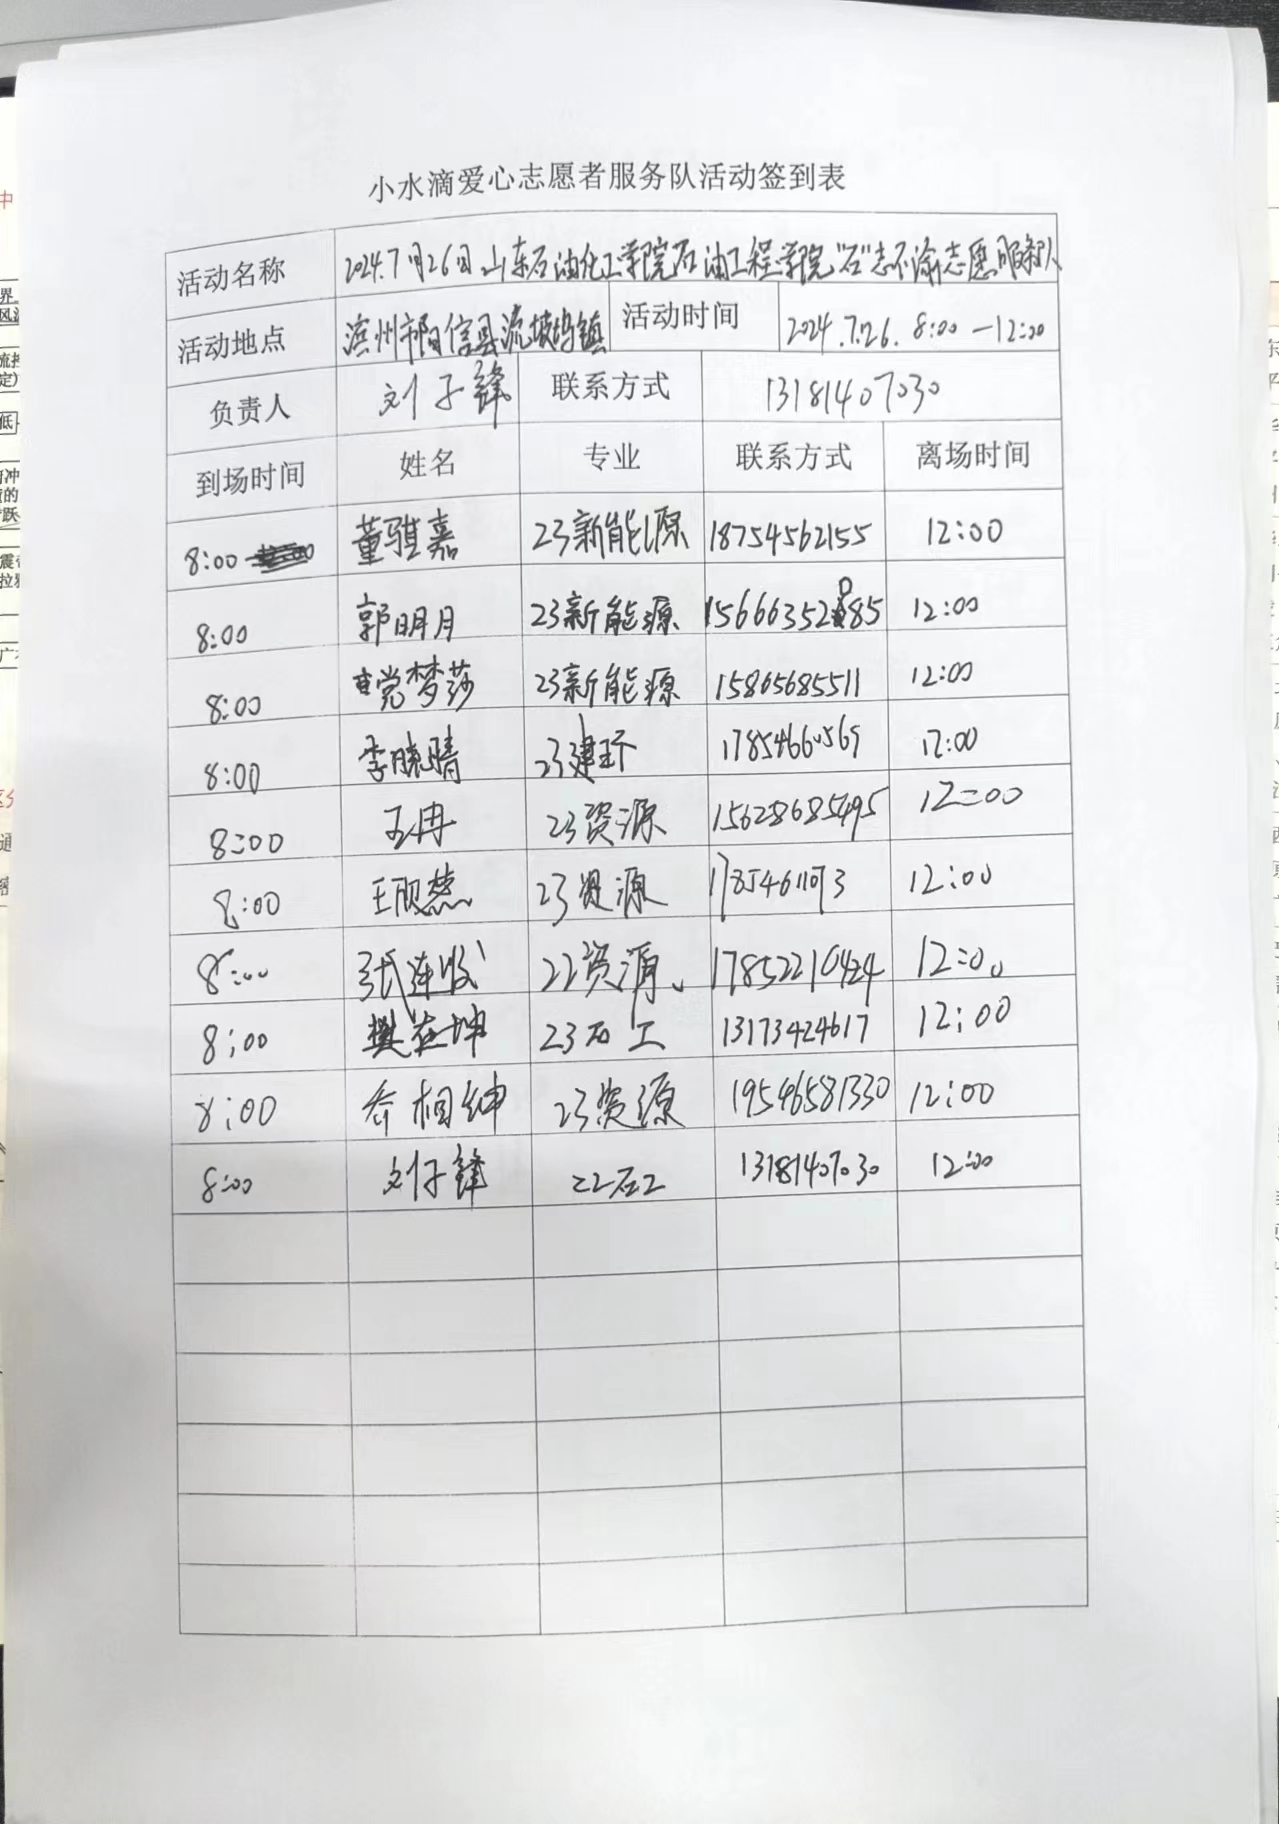 小水滴爱心志愿者服务队活动签到表
活动名称 2024.7月26日山东石油化工学院石油工程学院"石"志不渝志愿服务队
活动地点 滨州市阳信县流坡坞镇 活动时间 2024.7.26. 8:00—12:00
负责人 刘子锋 联系方式 13181407030
到场时间 姓名 专业 联系方式 离场时间
8:00 董骐嘉 23新能源 18754562155 12:00
8:00 郭明月 23新能源 15666352085 12:00
8:00 党梦莎 23新能源 15865685511 12:00
8:00 李晓晴 23建环 12:00
8:00 王冉 23资源 15628685495 12:00
8:00 23资源 12:00
8:00 张连收 22资源 17852210424 12:00
8:00 樊在坤 23石工 13173424617 12:00
8:00 乔相绅 23资源 19546581330 12:00
8:00 刘子锋 22石工 13181407030 12:00